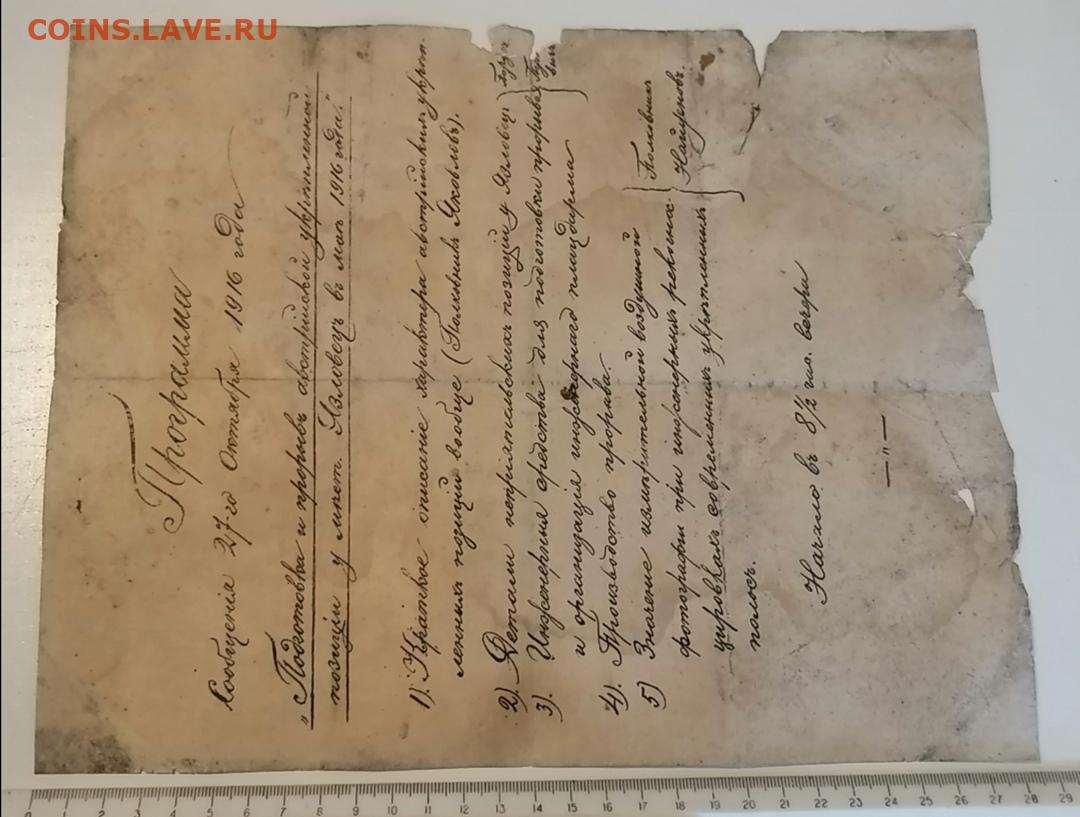 COINS.LAVE.RU
Программа
Сообщенія 27-го Октября 1916 года
„Подготовка и прорывъ австрійской укрѣпленной
позиціи у мѣст. Язловецъ въ маѣ 1916 года."
1). Краткое описаніе характера австрійских укрѣп-
ленных позицій вообще (Полковник Яковлевъ).
2). Детали непріятельских позицій у Язловец
3). Инженерныя средства для подготовки прорыва
и организація инженернаго плацдарма
4). Производство прорыва.
5) Значеніе измѣрительной воздушной
фотографіи при инженерных рекогна-
цировках современных укрѣпленных
полос.
Полковник
Найденовъ.
Начало въ 8 1/2 час. вечера
— " —
0 1 2 3 4 5 6 7 8 9 10 11 12 13 14 15 16 17 18 19 20 21 22 23 24 25 26 27 28 29